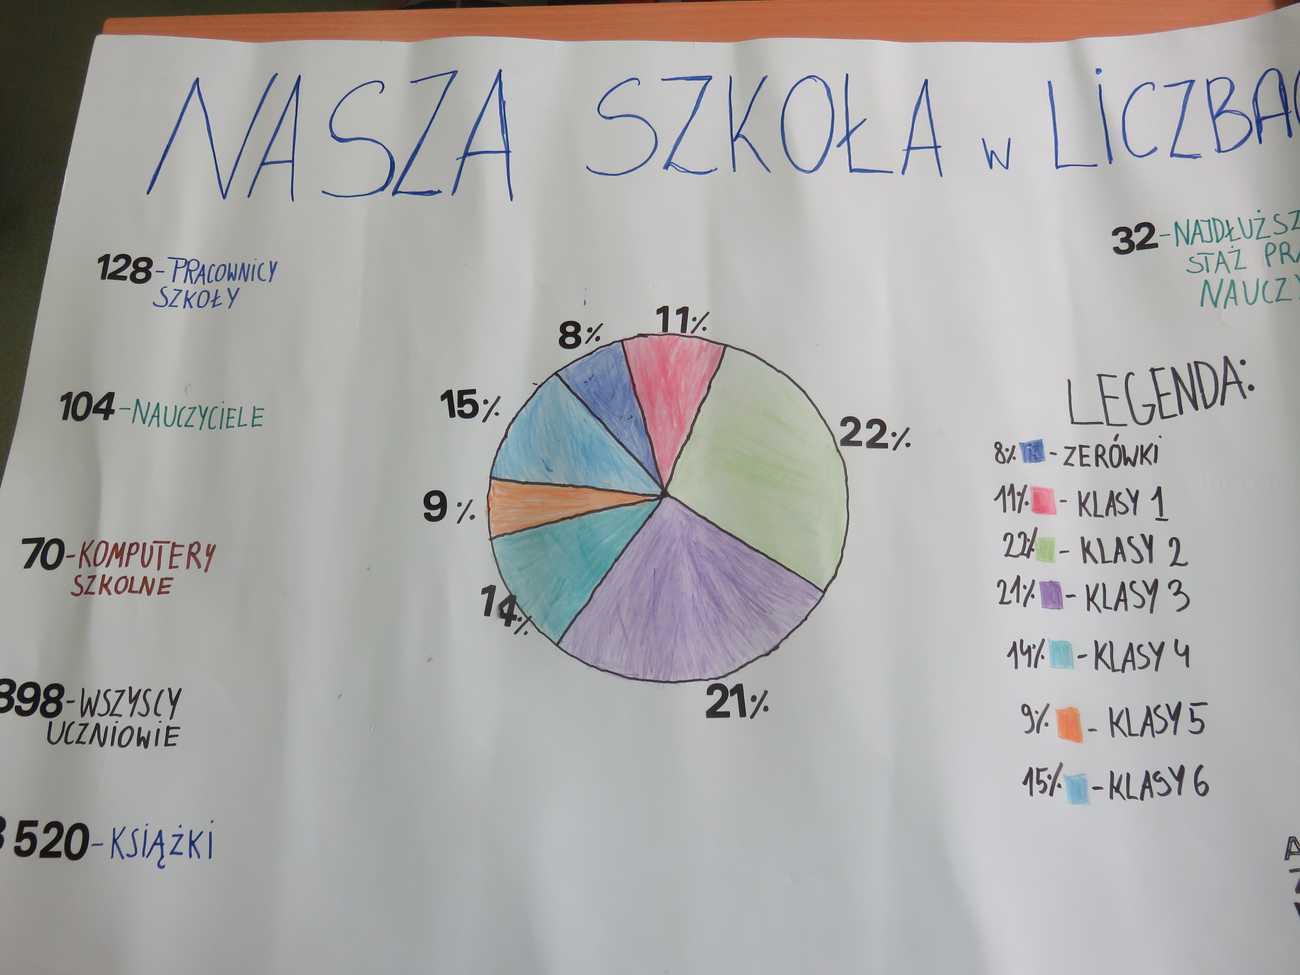 NASZA SZKOŁA W LICZBAC
128-PRACOWNICY
SZKOŁY
104-NAUCZYCIELE
70-KOMPUTERY
SZKOLNE
898-WSZYSCY
UCZNIOWIE
520-KSIĄŻKI
8%
11%
15%
22%
9%
14%
21%
32-NAJDŁUŻSZ
STAŻ PRA
NAUCZY
LEGENDA:
8% - ZERÓWKI
11% - KLASY 1
22% - KLASY 2
21% - KLASY 3
14% - KLASY 4
9% - KLASY 5
15% - KLASY 6